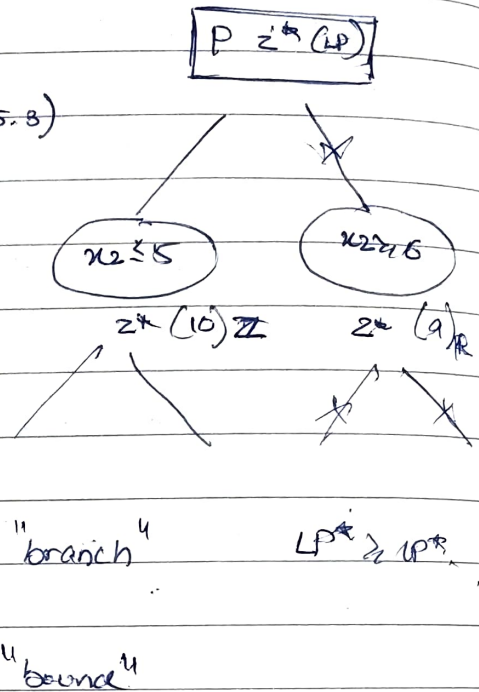 P z* (LP)
5.8)
x2 ≤ 5 x2 ≥ 6
z* (10) ℤ z* (9) ℝ
"branch" LP* ≥ IP*.
"bound"